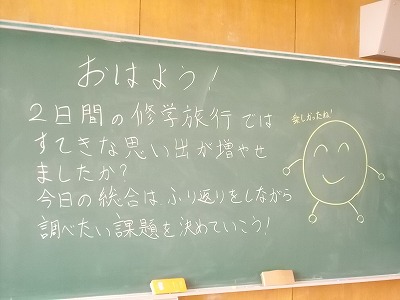 おはよう!
2日間の修学旅行では
すてきな思い出が増やせ
ましたか?
今日の総合は、ふり返りをしながら
調べたい課題を決めていこう!
楽しかったね!